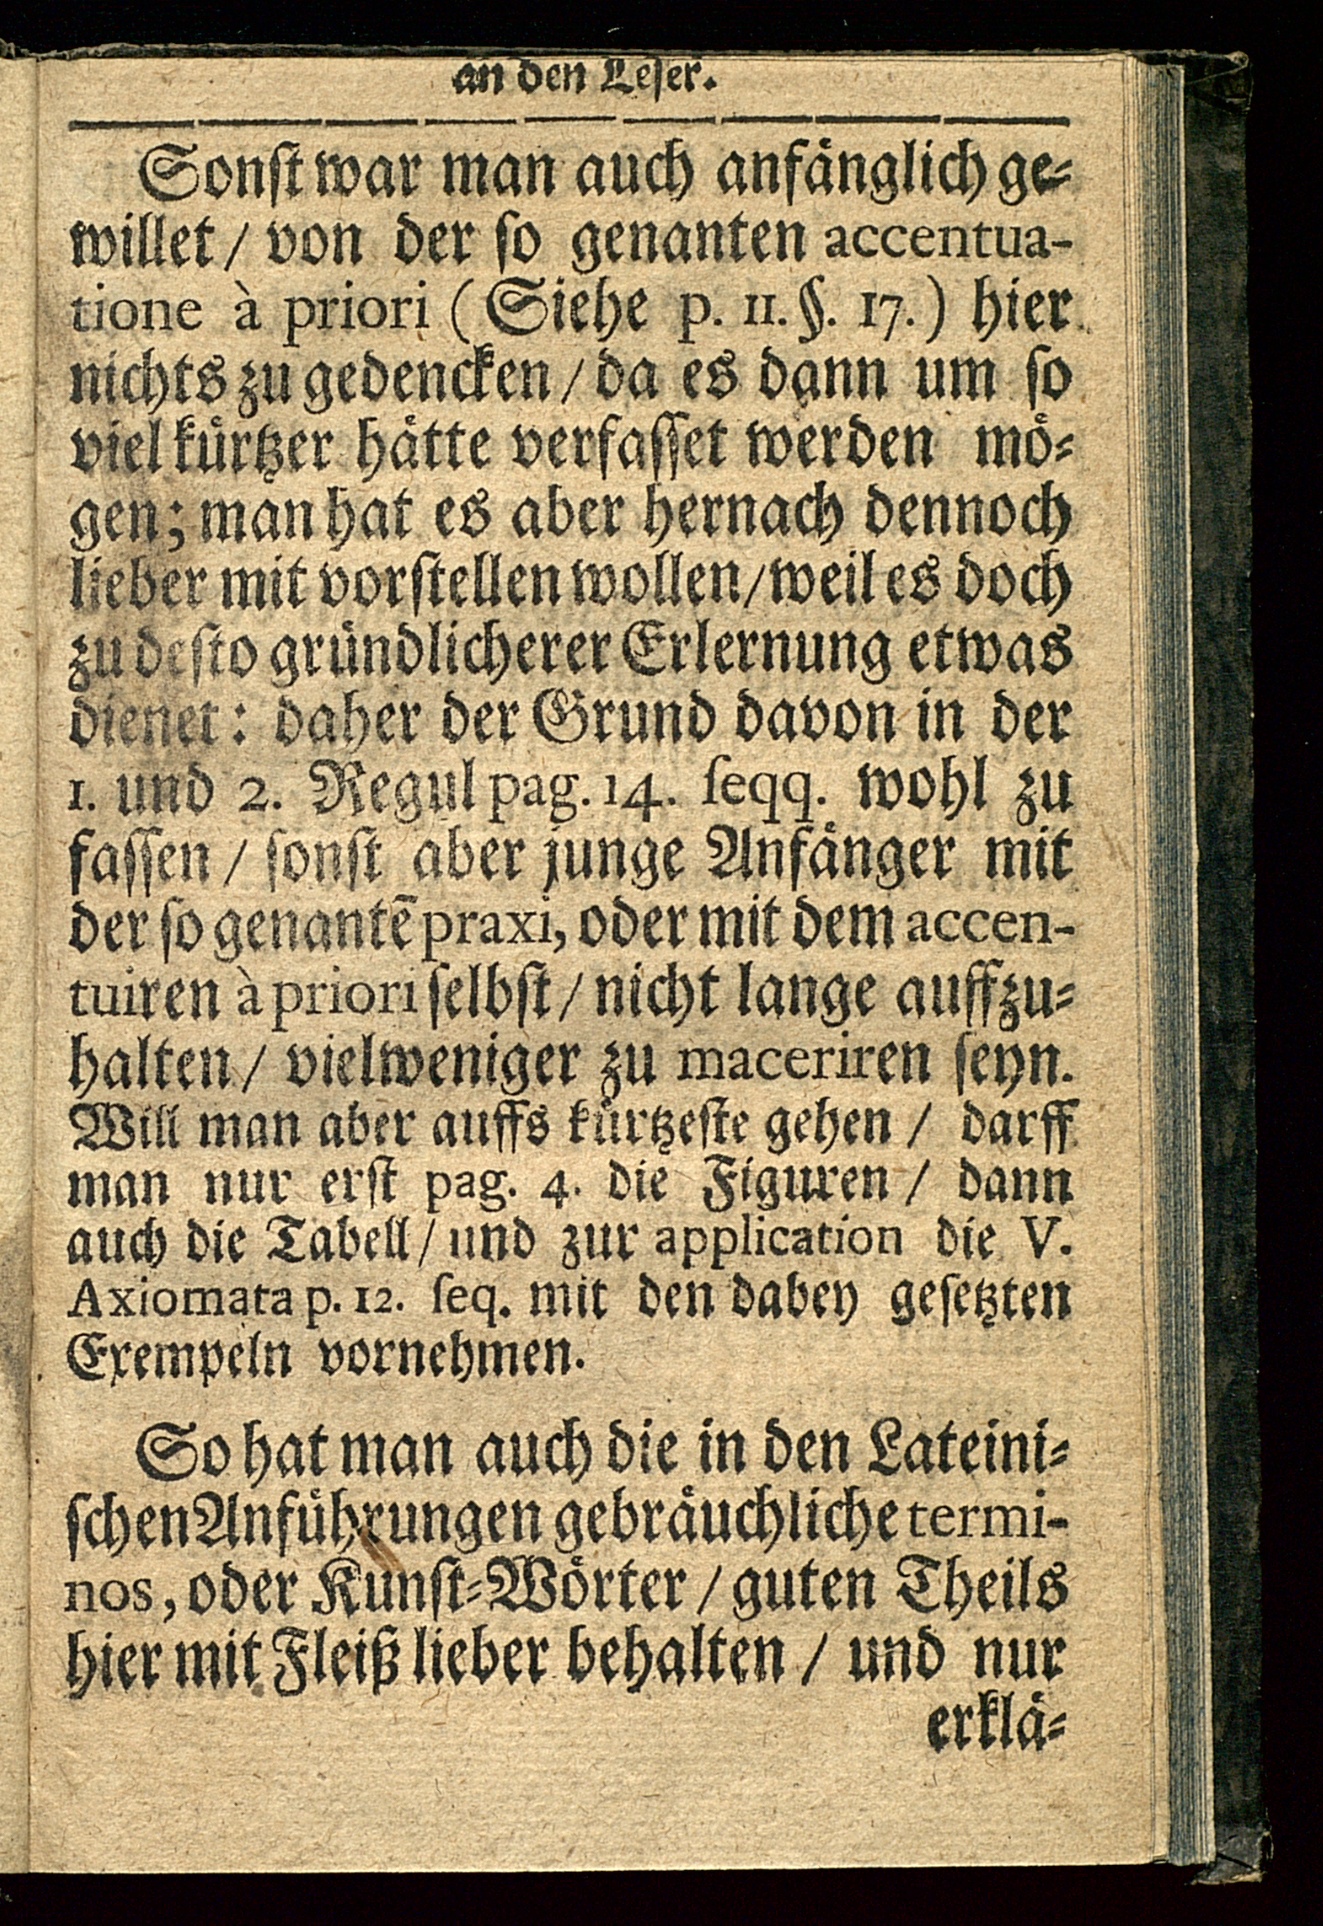 an den Leſer.
Sonſt war man auch anfänglich ge-
willet / von der ſo genanten accentua-
tione à priori (Siehe p. 11. §. 17.) hier
nichts zu gedencken / da es dann um ſo
viel kürtzer hätte verfaſſet werden mö-
gen; man hat es aber hernach dennoch
lieber mit vorſtellen wollen / weil es doch
zu deſto gründlicherer Erlernung etwas
dienet: daher der Grund davon in der
1. und 2. Regul pag. 14. ſeqq. wohl zu
faſſen / ſonſt aber junge Anfänger mit
der ſo genantẽ praxi, oder mit dem accen-
tuiren à priori ſelbſt / nicht lange auffzu-
halten / vielweniger zu maceriren ſeyn.
Will man aber auffs kürtzeſte gehen / darff
man nur erſt pag. 4. die Figuren / dann
auch die Tabell / und zur application die V.
Axiomata p. 12. ſeq. mit den dabey geſetzten
Exempeln vornehmen.
So hat man auch die in den Lateini-
ſchen Anführungen gebräuchliche termi-
nos, oder Kunſt-Wörter / guten Theils
hier mit Fleiß lieber behalten / und nur
erklä-